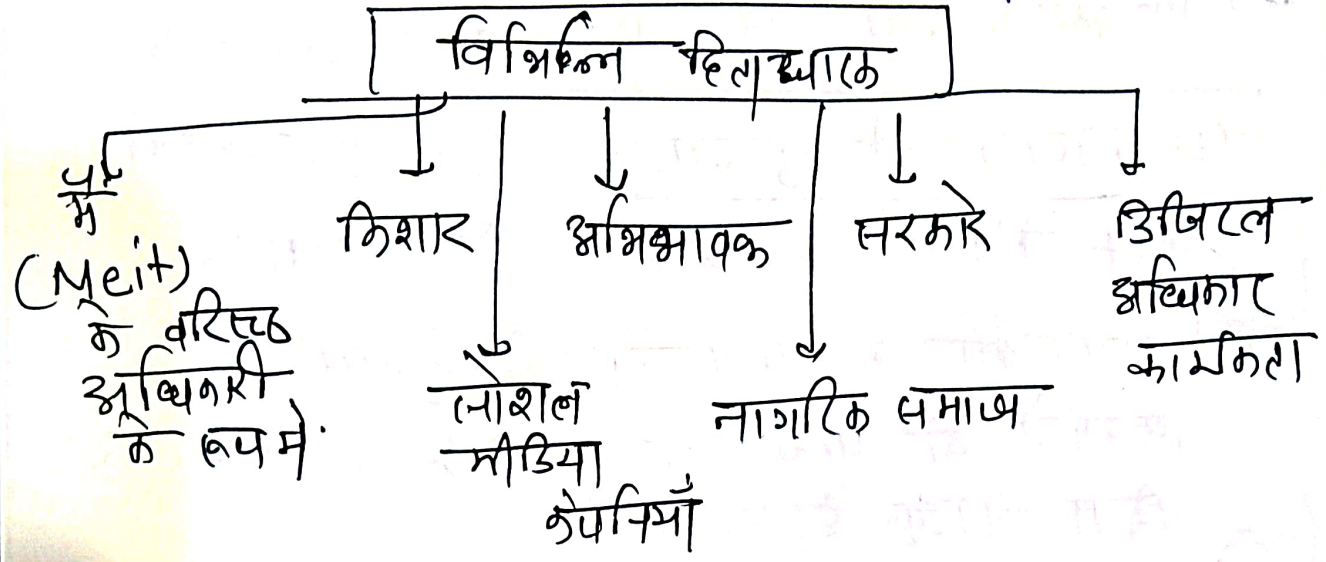 विभिन्न हितधारक
मैं
(Meit)
के वरिष्ठ
अधिकारी
के रूप में
किशोर
सोशल
मीडिया
कंपनियाँ
अभिभावक
नागरिक समाज
सरकारें
डिजिटल
अधिकार
कार्यकर्ता